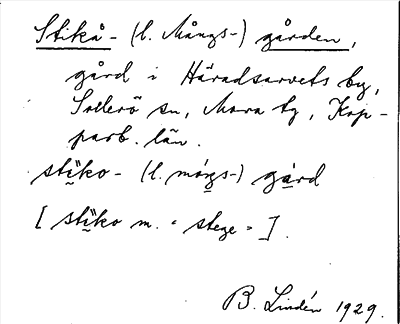 Stikå- (l. Mångs-) gården,
gård i Häradsarvets by,
Sollerö sn, Mora tg, Kop-
parb. län.
sti̬ko- (l. mo̬rgs-) ga̬rd
[ sti̬ko m. "stege" ].
B. Lindén 1929.